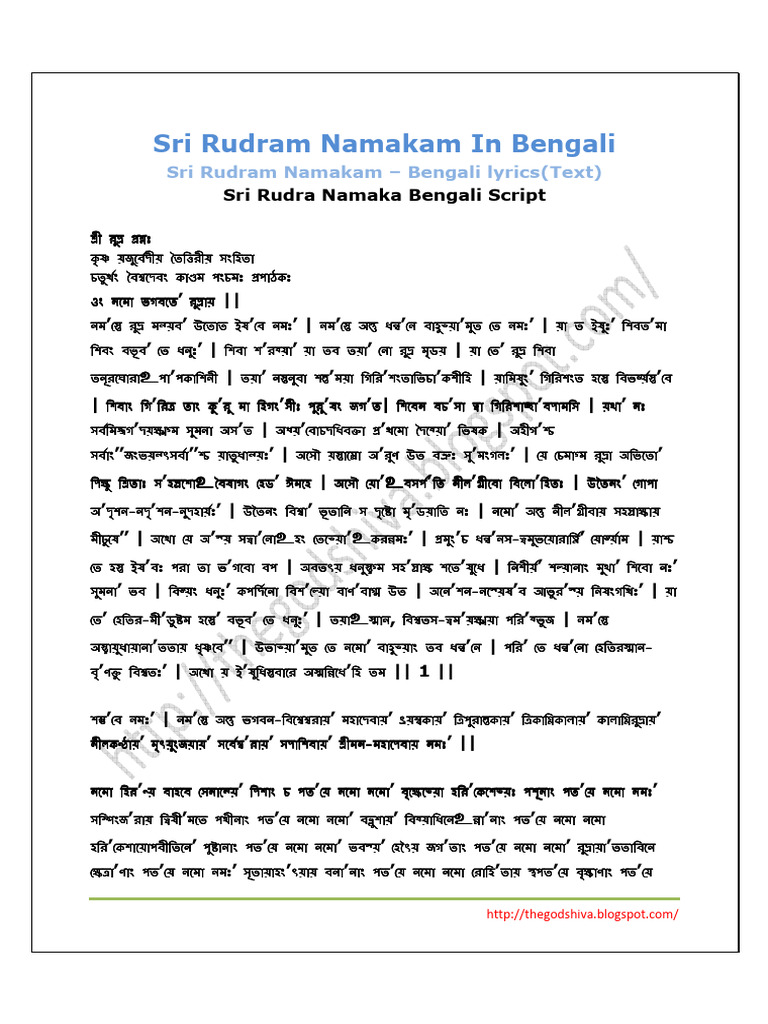 Sri Rudram Namakam In Bengali
Sri Rudram Namakam – Bengali lyrics(Text)
Sri Rudra Namaka Bengali Script
শ্রী রুদ্র প্রশ্নঃ
কৃষ্ণ যজুর্বেদীয় তৈত্তিরীয় সংহিতা
চতুর্থং বৈশ্বদেবং কাণ্ডম পংচমঃ প্রপাঠকঃ
ওং নমো ভগবতে' রুদ্রায় ||
নম'স্তে রুদ্র মন্যব' উতোত ইষ'বে নমঃ' | নম'স্তে অস্তু ধন্ব'নে বাহুভ্যা'মুত তে নমঃ' | যা ত ইষুঃ' শিবত'মা
শিবং বভূব' তে ধনুঃ' | শিবা শ'রব্যা' যা তব তয়া' নো রুদ্র মৃডয় | যা তে' রুদ্র শিবা
তনূরঘোরাஉপা'পকাশিনী | তয়া' নস্তনুবা শন্ত'ময়া গিরি'শংতাভিচা'কশীহি | য়ামিষুং' গিরিশংত হস্তে বিভর্ষ্যস্ত'বে
| শিবাং গি'রিত্র তাং কু'রু মা হিগংসীঃ পুরু'ষং জগ'ত| শিবেন বচ'সা ত্বা গিরিশাচ্ছা'বদামসি | যথা' নঃ
সর্বমিজ্জগ'দয়ক্ষ্মগং সুমনা অস'ত | অধ্য'বোচদধিবক্তা প্র'থমো দৈব্যো' ভিষক | অহীগ'শ্চ
সর্বাং''জংভয়ন্ৎসর্বা''শ্চ য়াতুধান্যঃ' | অসৌ য়স্তাম্রো অ'রুণ উত বভ্রুঃ সু'মংগলঃ' | যে চেমাগং রুদ্রা অভিতো'
দিক্ষু শ্রিতাঃ স'হস্রশোஉবৈষাগং হেড' ঈমহে | অসৌ যো'உবসর্প'তি নীল'গ্রীবো বিলো'হিতঃ | উতৈনং' গোপা
অ'দৃশন-নদৃ'শন-নুদহার্যঃ' | উতৈনং বিশ্বা' ভূতানি স দৃষ্টো মৃ'ডয়াতি নঃ | নমো' অস্তু নীল'গ্রীবায় সহস্রাক্ষায়
মীঢুষে'' | অথো যে অ'স্য সত্বা'নোஉহং তেভ্যো'உকরন্নমঃ' | প্রমুং'চ ধন্ব'নস-ত্বমুভয়োরার্ত্নি' য়োর্জ্যাম | য়াশ্চ
তে হস্ত ইষ'বঃ পরা তা ভ'গবো বপ | অবতত্য ধনুস্ত্বম সহ'স্রাক্ষ শতে'ষুধে | নিশীর্য' শল্যানাং মুখা' শিবো নঃ'
সুমনা' ভব | বিজ্যং ধনুঃ' কপর্দিনো বিশ'ল্যো বাণ'বাগ্ম উত | অনে'শন-নস্যেষ'ব আভুর'স্য নিষংগথিঃ' | যা
তে' হেতির-মী'ডুষ্টম হস্তে' বভূব' তে ধনুঃ' | তয়াஉস্মান, বিশ্বতস-ত্বম'য়ক্ষ্ময়া পরি'ব্ভুজ | নম'স্তে
অস্ত্বায়ুধায়ানা'ততায় ধৃষ্ণবে'' | উভাভ্যা'মুত তে নমো' বাহুভ্যাং তব ধন্ব'নে | পরি' তে ধন্ব'নো হেতিরস্মান-
বৃ'ণক্তু বিশ্বতঃ' | অথো য় ই'ষুধিস্তবারে অস্মন্নিধে'হি তম || 1 ||
শম্ভ'বে নমঃ' | নম'স্তে অস্তু ভগবন-বিশ্বেশ্বরায়' মহাদেবায়' ত্র্যম্বকায়' ত্রিপুরান্তকায়' ত্রিকাগ্নিকালায়' কালাগ্নিরুদ্রায়'
নীলকণ্ঠায়' মৃত্যুংজয়ায়' সর্বেশ্ব'রায়' সদাশিবায়' শ্রীমন-মহাদেবায় নমঃ' ||
নমো হির'ণ্য বাহবে সেনান্যে' দিশাং চ পত'যে নমো নমো' বৃক্ষেভ্যো হরি'কেশেভ্যঃ পশূনাং পত'যে নমো নমঃ'
সস্পিংজ'রায় ত্বিষী'মতে পথীনাং পত'যে নমো নমো' বভ্লুশায়' বিব্যাধিনেஉন্না'নাং পত'যে নমো নমো
হরি'কেশায়োপবীতিনে' পুষ্টানাং পত'যে নমো নমো' ভবস্য' হেত্যৈ জগ'তাং পত'যে নমো নমো' রুদ্রায়া'ততাবিনে
ক্ষেত্রা'ণাং পত'যে নমো নমঃ' সূতায়াহং'ত্যায় বনা'নাং পত'যে নমো নমো রোহি'তায় স্থপত'যে বৃক্ষাণাং পত'যে
http://thegodshiva.blogspot.com/